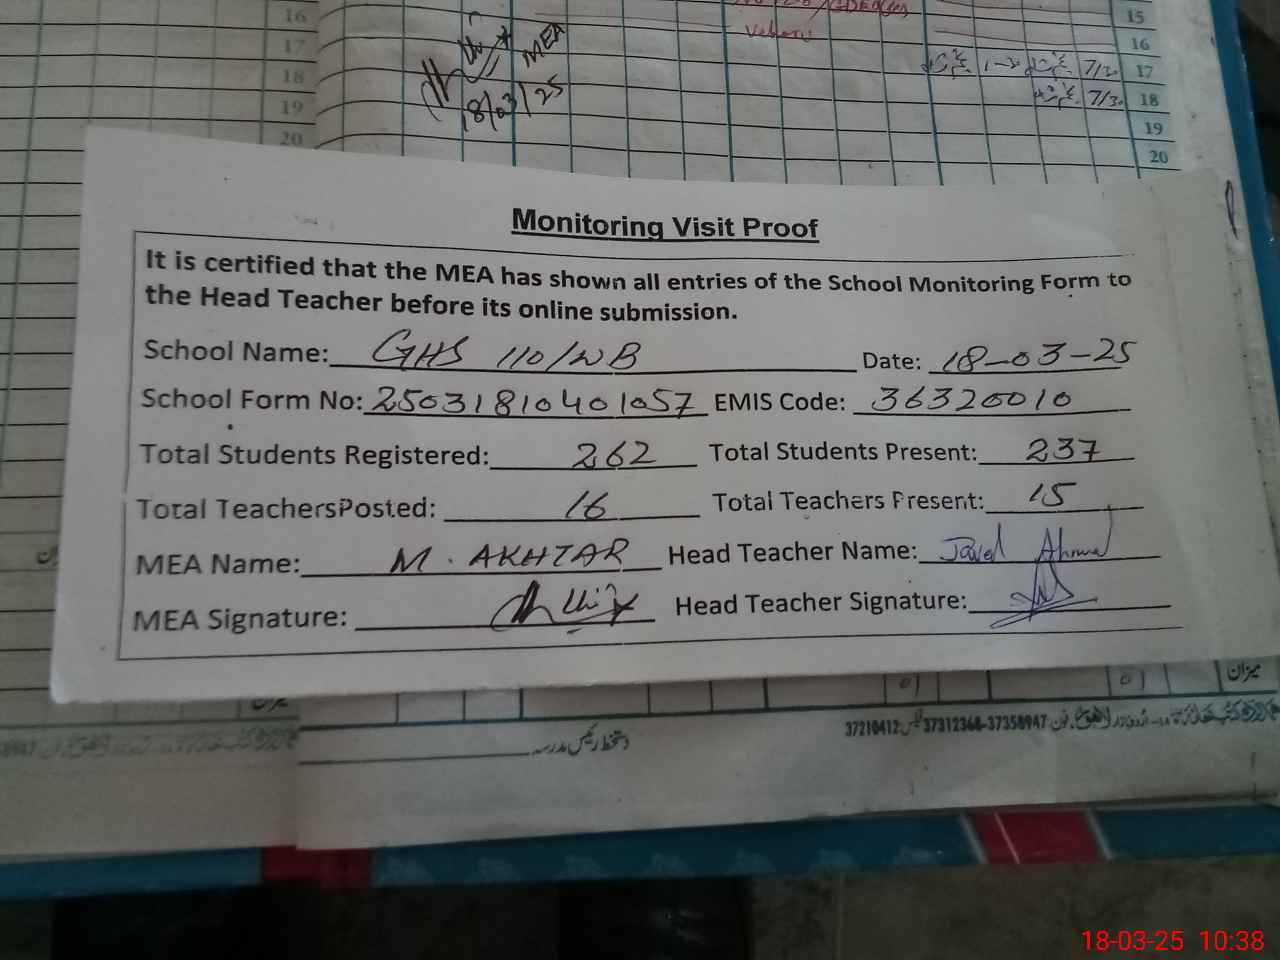 16
17
18
19
20
MEA
18/03/25
15
16
17
18
19
20
1-2
7/2
7/3
Monitoring Visit Proof
It is certified that the MEA has shown all entries of the School Monitoring Form to
the Head Teacher before its online submission.
School Name: GHS 110/WB Date: 18-03-25
School Form No: 25031810401057 EMIS Code: 36320010
Total Students Registered: 262 Total Students Present: 237
Total TeachersPosted: 16 Total Teachers Present: 15
MEA Name: M. AKHTAR Head Teacher Name: Javed Ahmad
MEA Signature: Head Teacher Signature:
میزان
دستخط رئیس مدرسہ
37312368-37358947
37210412
18-03-25 10:38